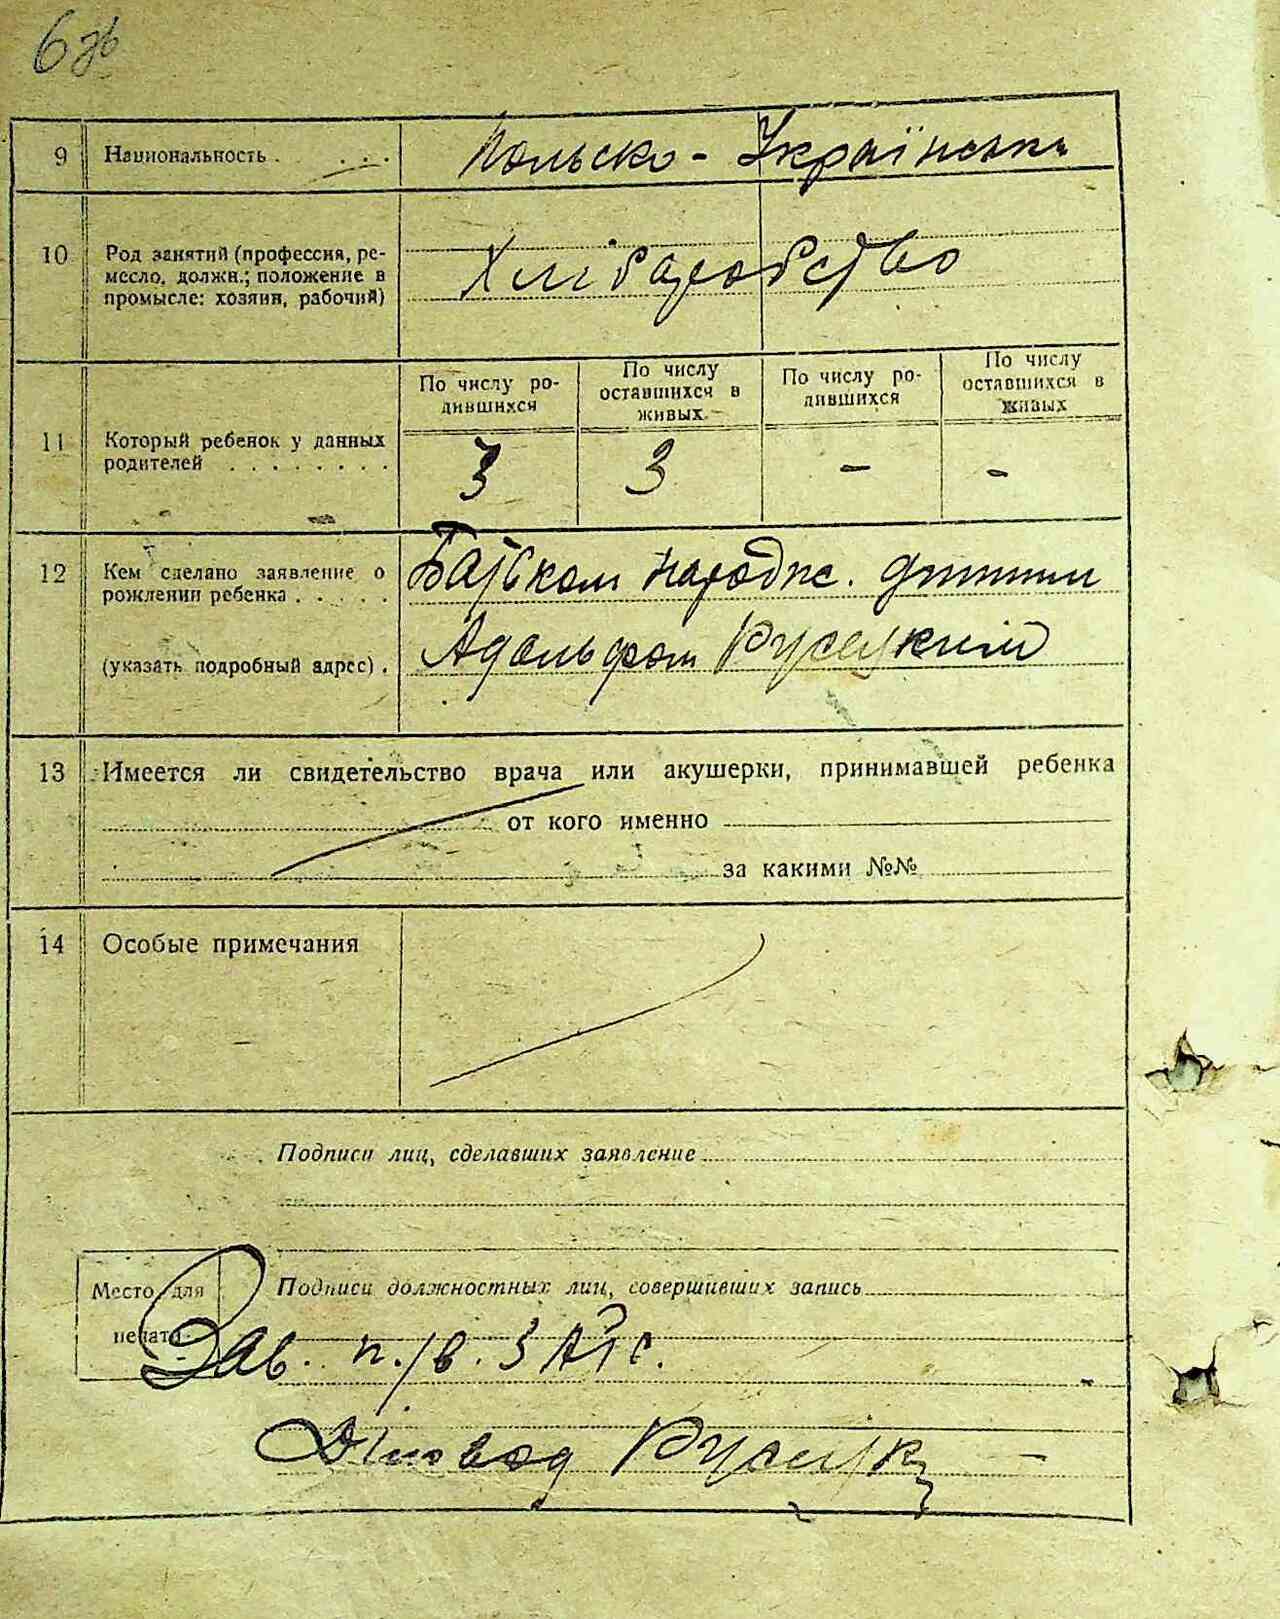 6 зв
9 Национальность . . . . . Польско - Українська
10 Род занятий (профессия, ре-
месло, должн.; положение в
промысле: хозяин, рабочий)
Хліборобство
По числу ро-
дившихся
По числу
оставшихся в
живых
По числу ро-
дившихся
По числу
оставшихся в
живых
11 Который ребенок у данных
родителей . . . . . . . .
3 3 - -
12 Кем сделано заявление о
рождении ребенка . . . . .
(указать подробный адрес) .
Батьком народж. дитини
Адольфом Русецким
13 Имеется ли свидетельство врача или акушерки, принимавшей ребенка
от кого именно
за какими №№
14 Особые примечания
Подписи лиц, сделавших заявление
Место для
печати
Подписи должностных лиц, совершивших запись
Зав. п./в. ЗАГС.
Діловод